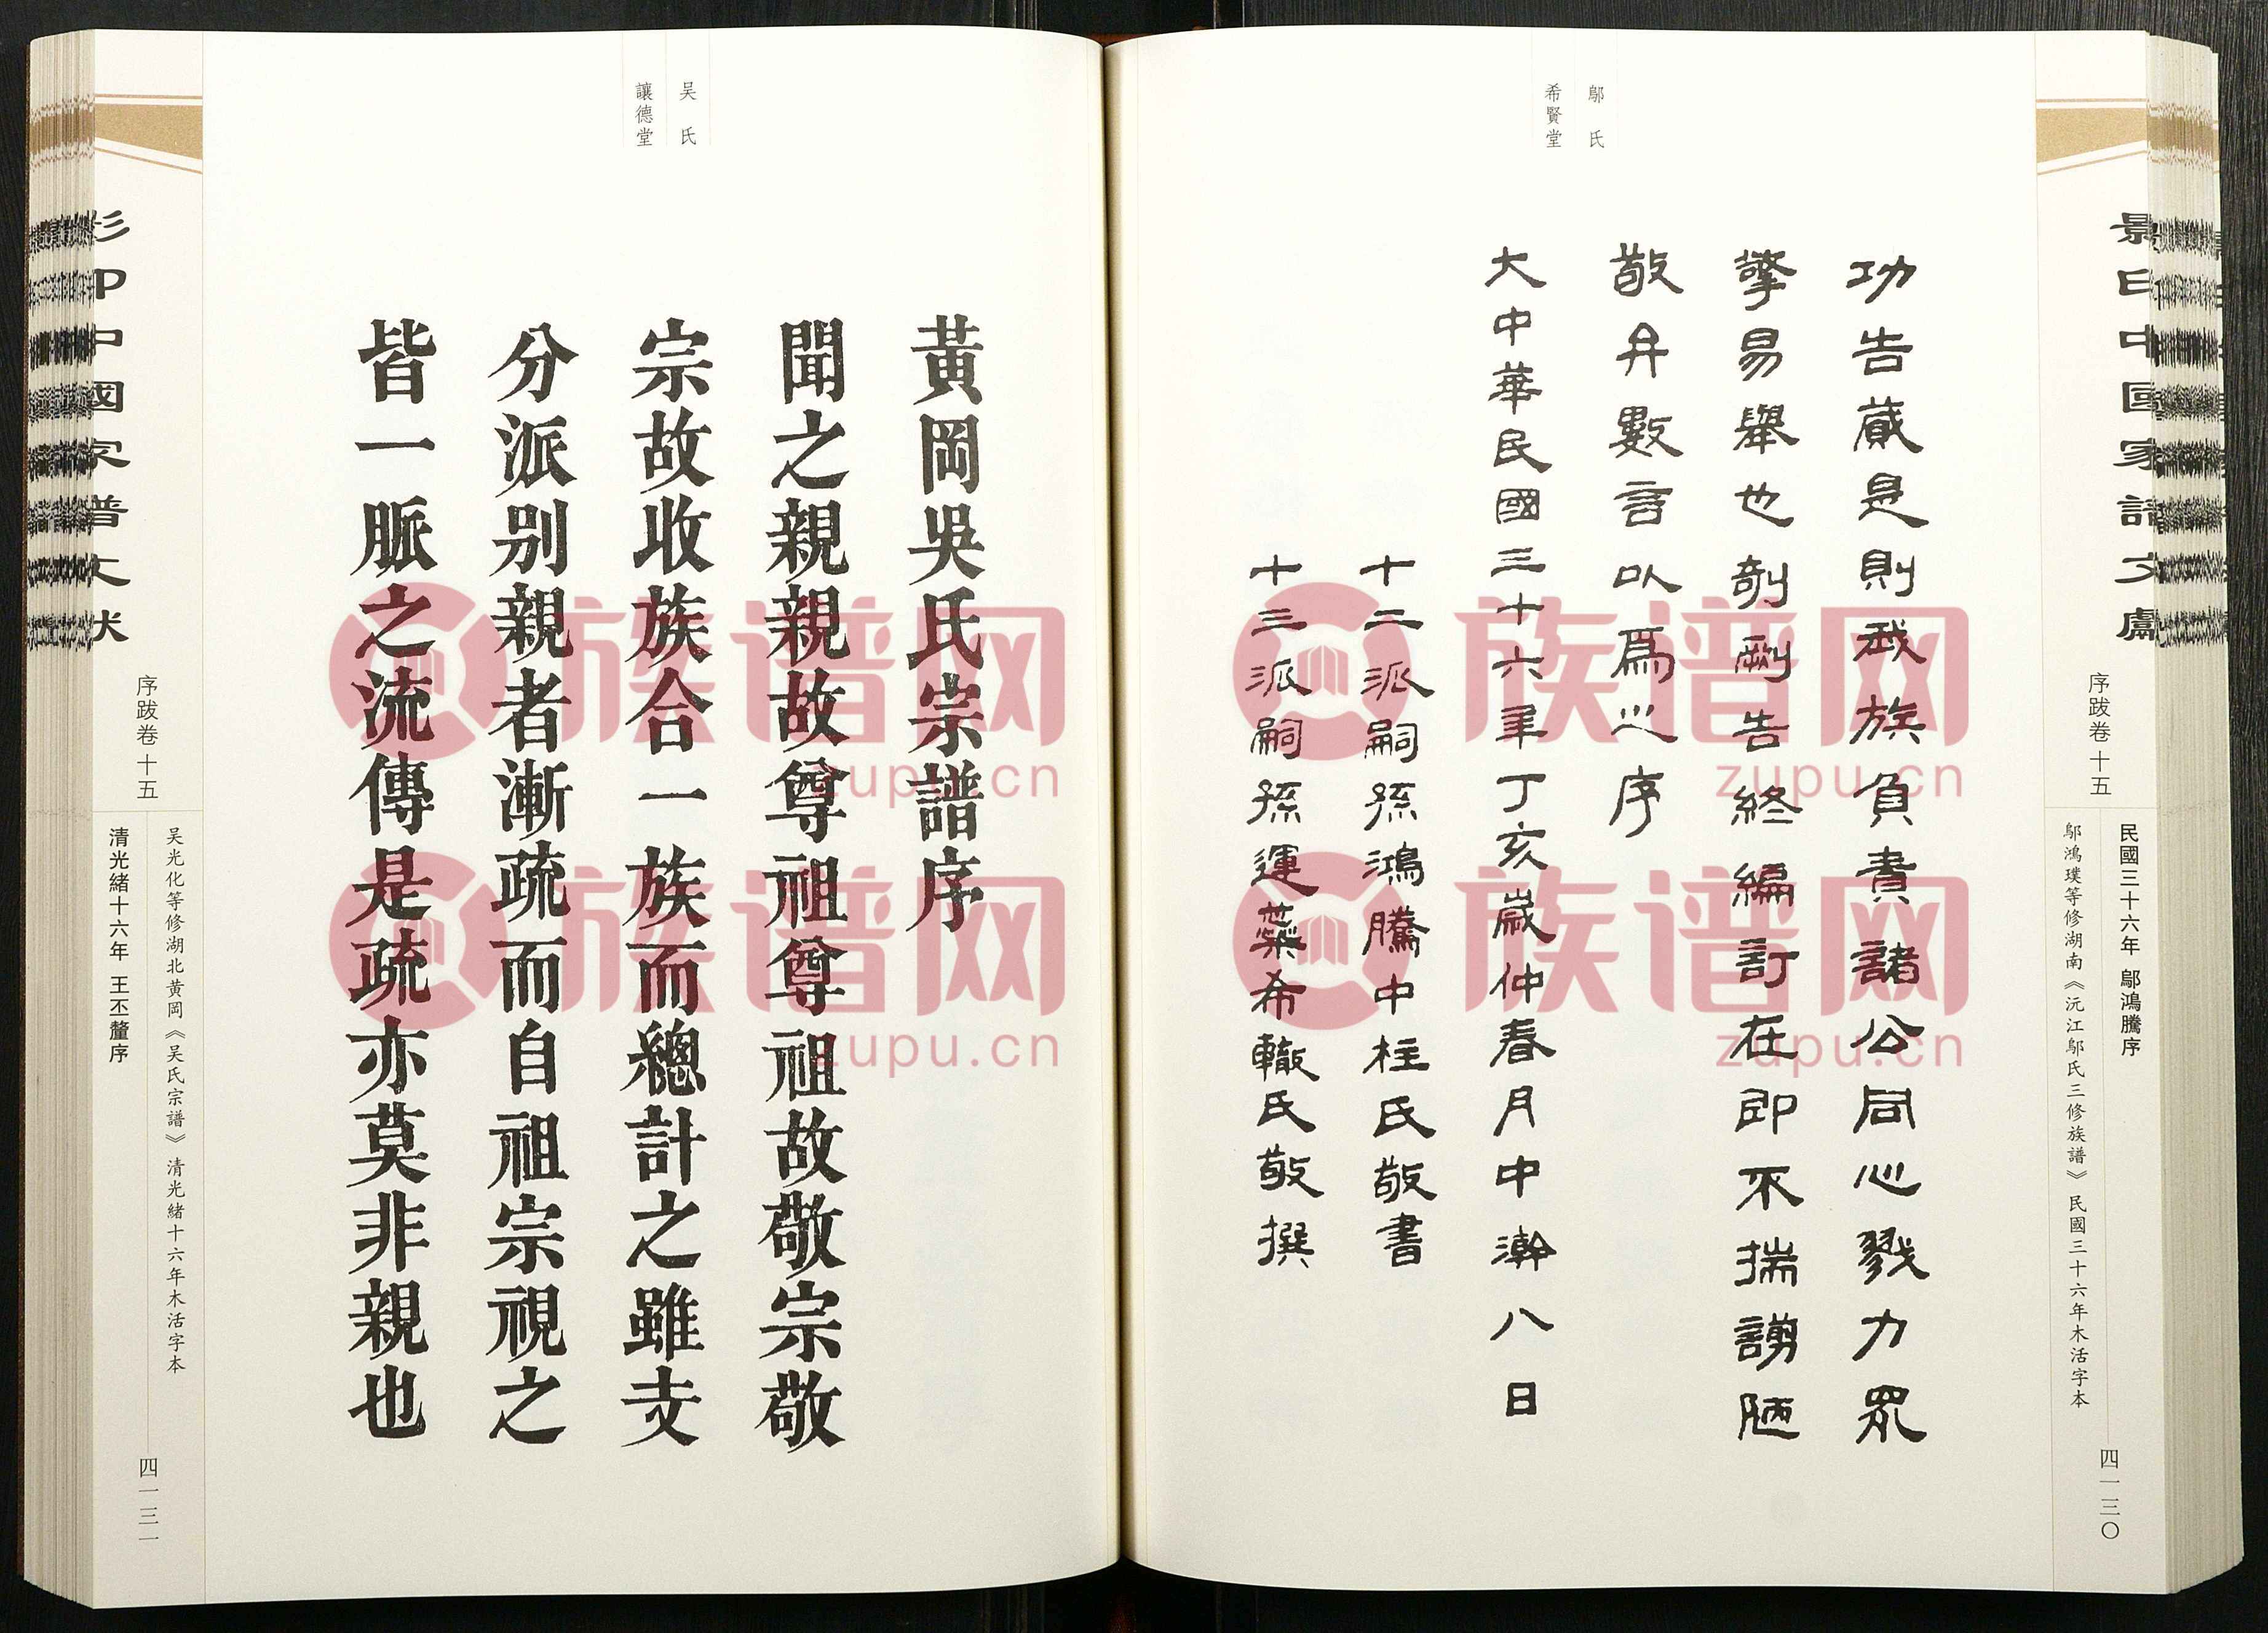 鄔氏
希賢堂
功告蕆是則我族負責諸公同心戮力眾
擎易舉也剞劂告終編訂在即不揣謭陋
敬弁數言以爲之序
大中華民國三十六年丁亥歲仲春月中澣八日
十二派嗣孫鴻騰中柱氏敬書
十三派嗣孫運蘂希轍氏敬撰
景印中國家譜文獻
序跋卷十五
民國三十六年 鄔鴻騰序
鄔鴻璞等修湖南《沅江鄔氏三修族譜》民國三十六年木活字本
四一三〇
吴氏
讓德堂
黃岡吳氏宗譜序
聞之親親故尊祖尊祖故敬宗敬
宗故收族合一族而總計之雖支
分派别親者漸疏而自祖宗視之
皆一脈之流傳是疏亦莫非親也
影印中國家譜文獻
序跋卷十五
吴光化等修湖北黄岡《吴氏宗譜》清光緒十六年木活字本
清光緒十六年 王丕釐序
四一三一
族谱网
zupu.cn
族谱网
zupu.cn
族谱网
zupu.cn
族谱网
zupu.cn